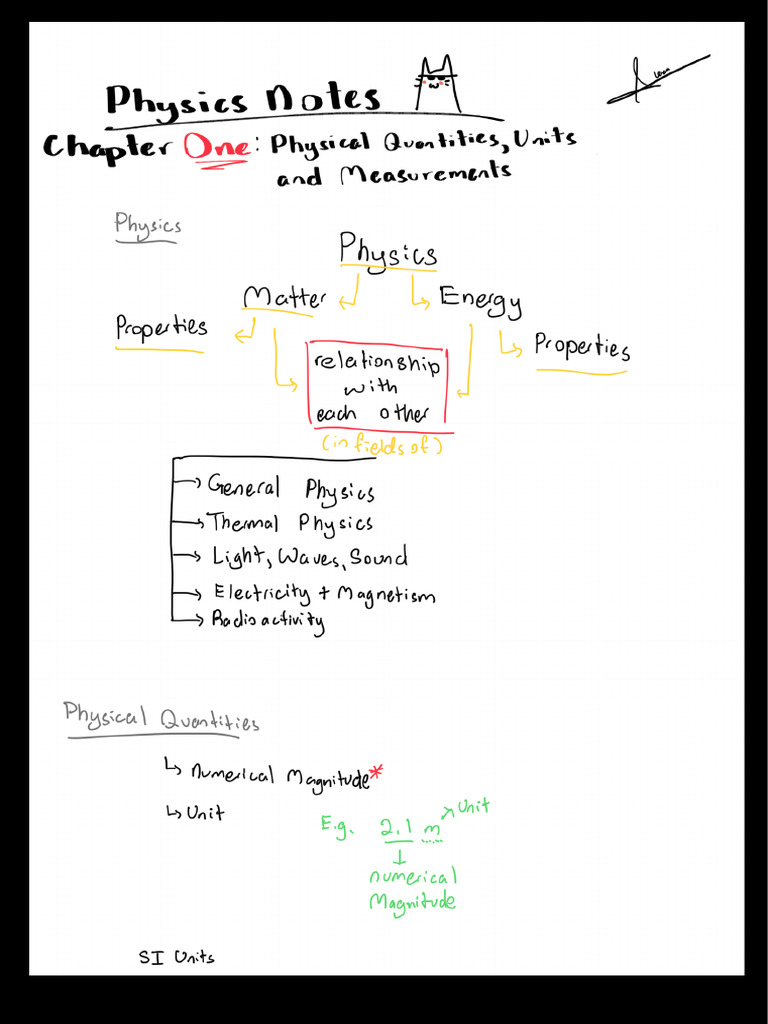 Physics Notes
Chapter One: Physical Quantities, Units
and Measurements
Physics
Physics
Matter
Energy
Properties
Properties
relationship
with
each other
(in fields of)
General Physics
Thermal Physics
Light, Waves, Sound
Electricity + Magnetism
Radioactivity
Physical Quantities
Numerical Magnitude*
Unit
E.g. 2.1 m
Unit
numerical
Magnitude
SI Units